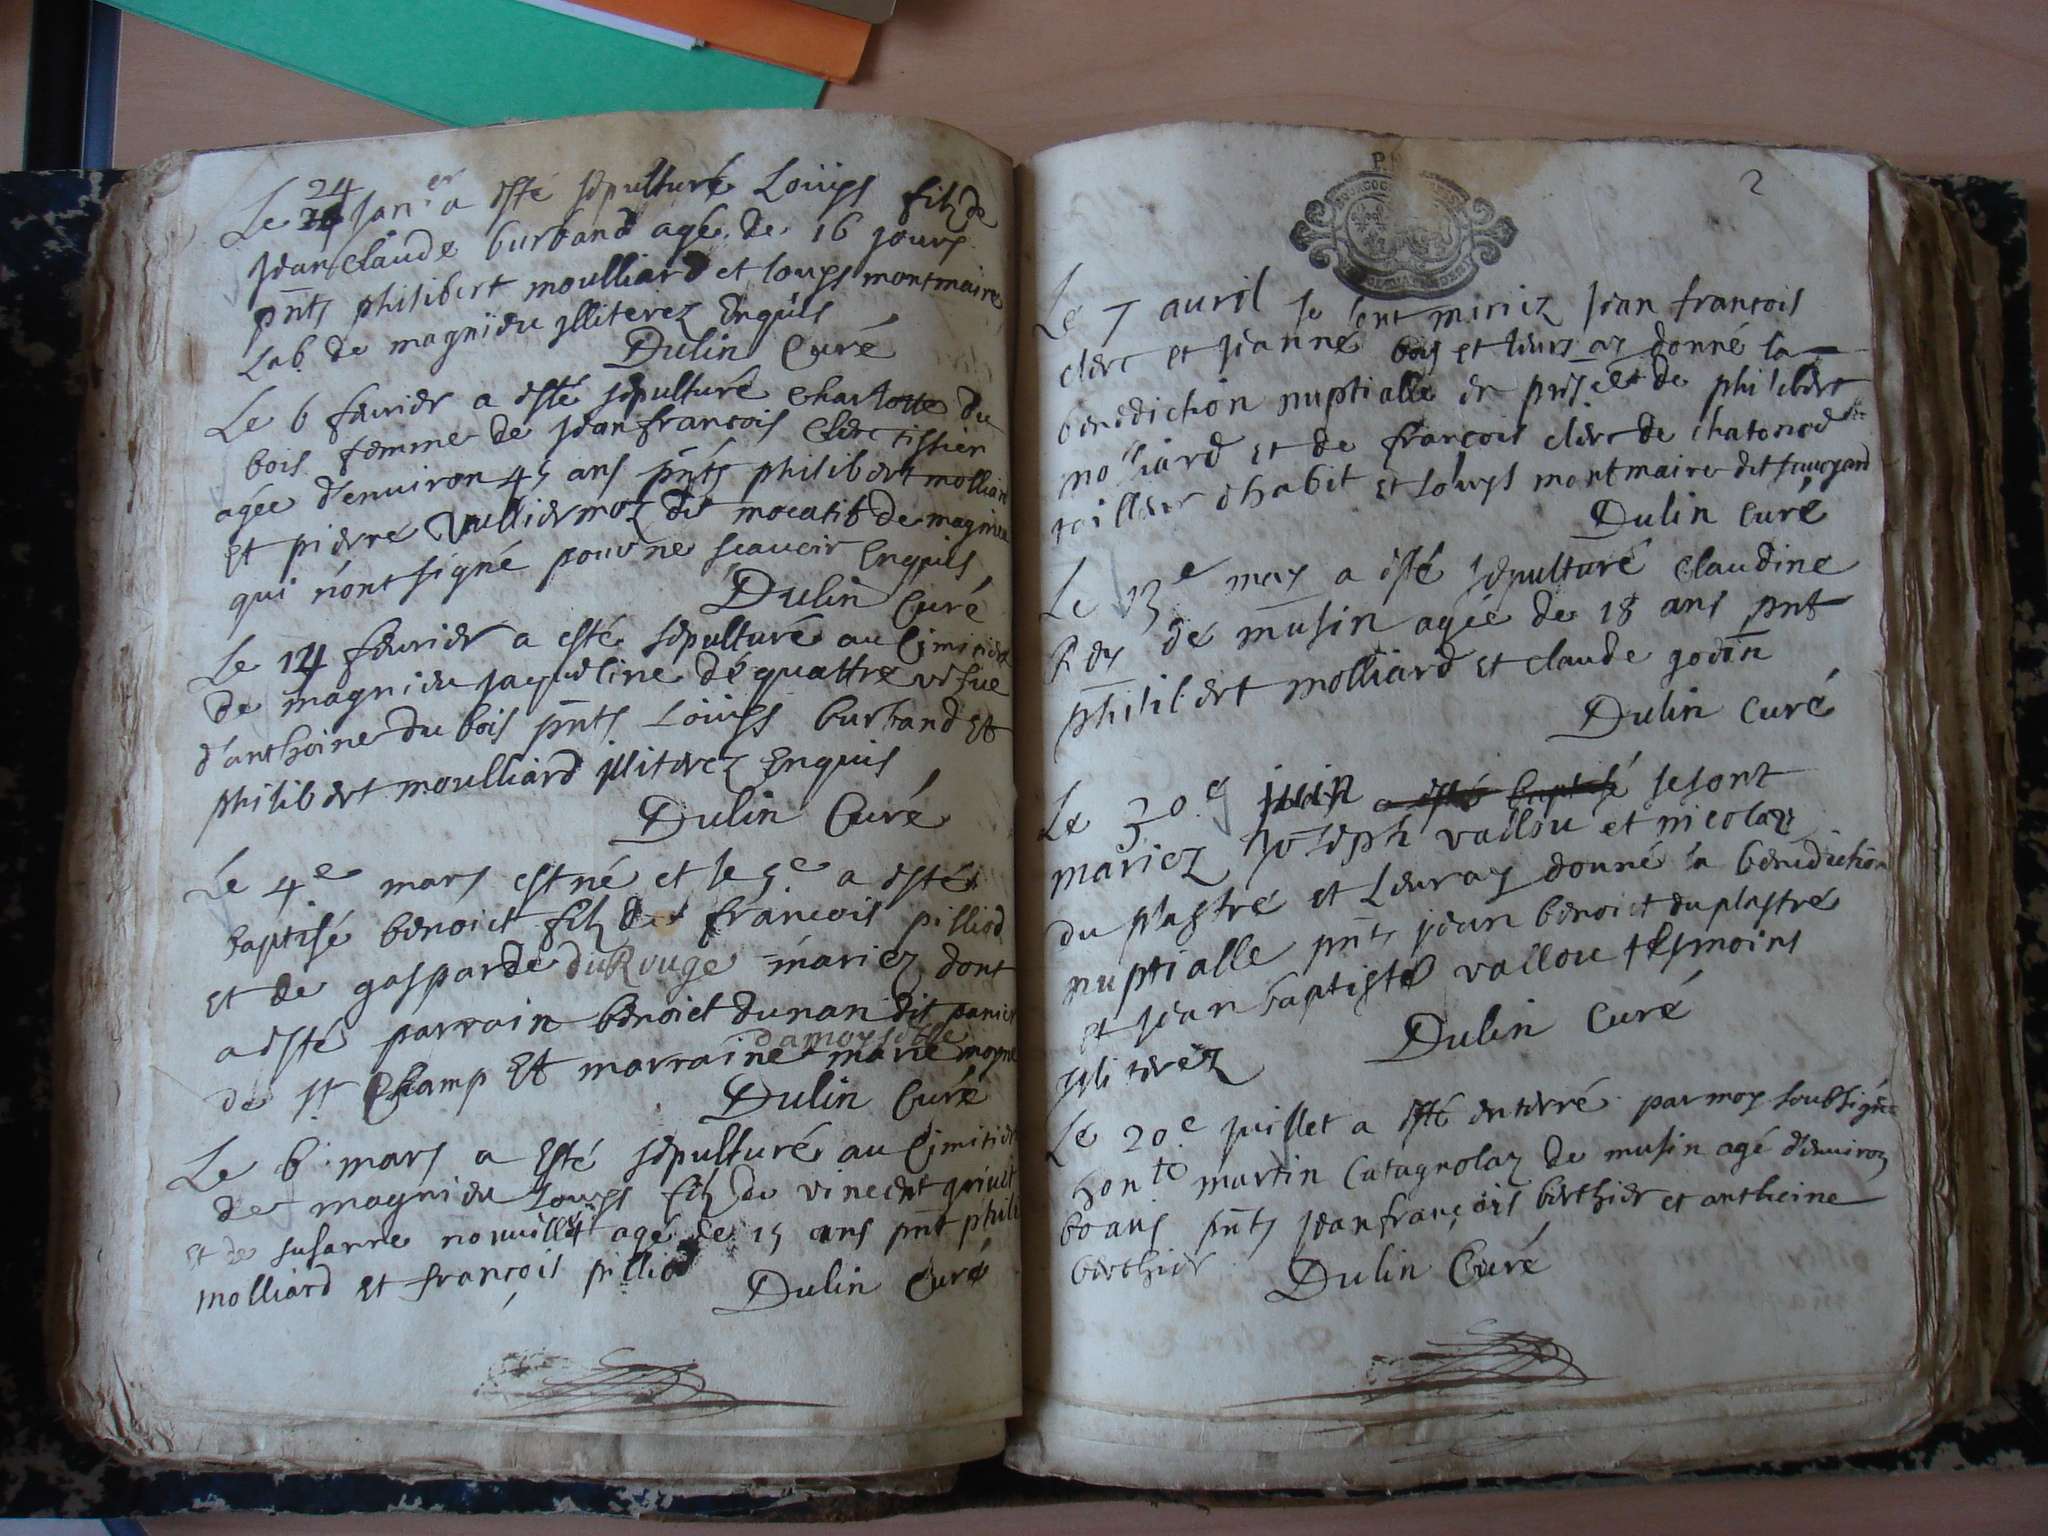 Le 24 Jan.er a esté sepulturé Louys filz de
Jean Claude burband agé de 16 jours
pnts philibert moulliard et louys montmaire
Lab. de magnieu illiterez Enquis
Dulin Curé
Le 6 feurier a esté sepulturé Charlotte du
bois femme de Jean francois Clerc tissier
agée d'enuiron 45 ans pnts philibert molliard
Et pierre Vulliermoz dit mocatib de magnieu
qui n'ont signé pour ne scauoir Enquis
Dulin Curé
Le 14 feurier a esté sepulturé au Cimitier
de magnieu jaqueline déquattre vefue
d'anthoine du bois pnts Louys burband Et
philibert moulliard illiterez Enquis
Dulin Curé
Le 4e mars est né et le 5e a esté
baptisé benoict filz de francois pilliod
Et de gasparde du Rouge mariez dont
a esté parrain benoict dunan dit panier
damoyselle
de st Champ Et marraine marie moyne
Dulin Curé
Le 6 mars a Esté sepulturé au Cimitier
de magnieu Louys filz de vincent
et de susanne agé de 15 ans pnt phili
molliard Et francois pilliod
Dulin Curé
2
Le 7 auril se sont mariez Jean francois
clerc et Jeanne boy et leurs ay donné la
benediction nuptialle en de philibert
molliard Et de francois clerc de chatonod
tailleur d'habit Et Louys montmaire dit sauoyard
Dulin curé
Le 13e may a esté sepulturé Claudine
Rey de musin agée de 18 ans pnt
philibert molliard Et claude godin
Dulin Curé
Le 30e juin a esté baptisé se sont
mariez Joseph vallou et nicolaze
du plastre Et Leur ay donné la benediction
nuptialle pnts jean benoict du plastre
et Jean baptiste vallou tesmoins
illiterez Dulin Curé
Le 20e juillet a esté enterré par moy soubsigné
honte martin Catagnolaz de musin agé d'enuiron
60 ans pnts Jean francois berthier et antheine
berthier Dulin Curé